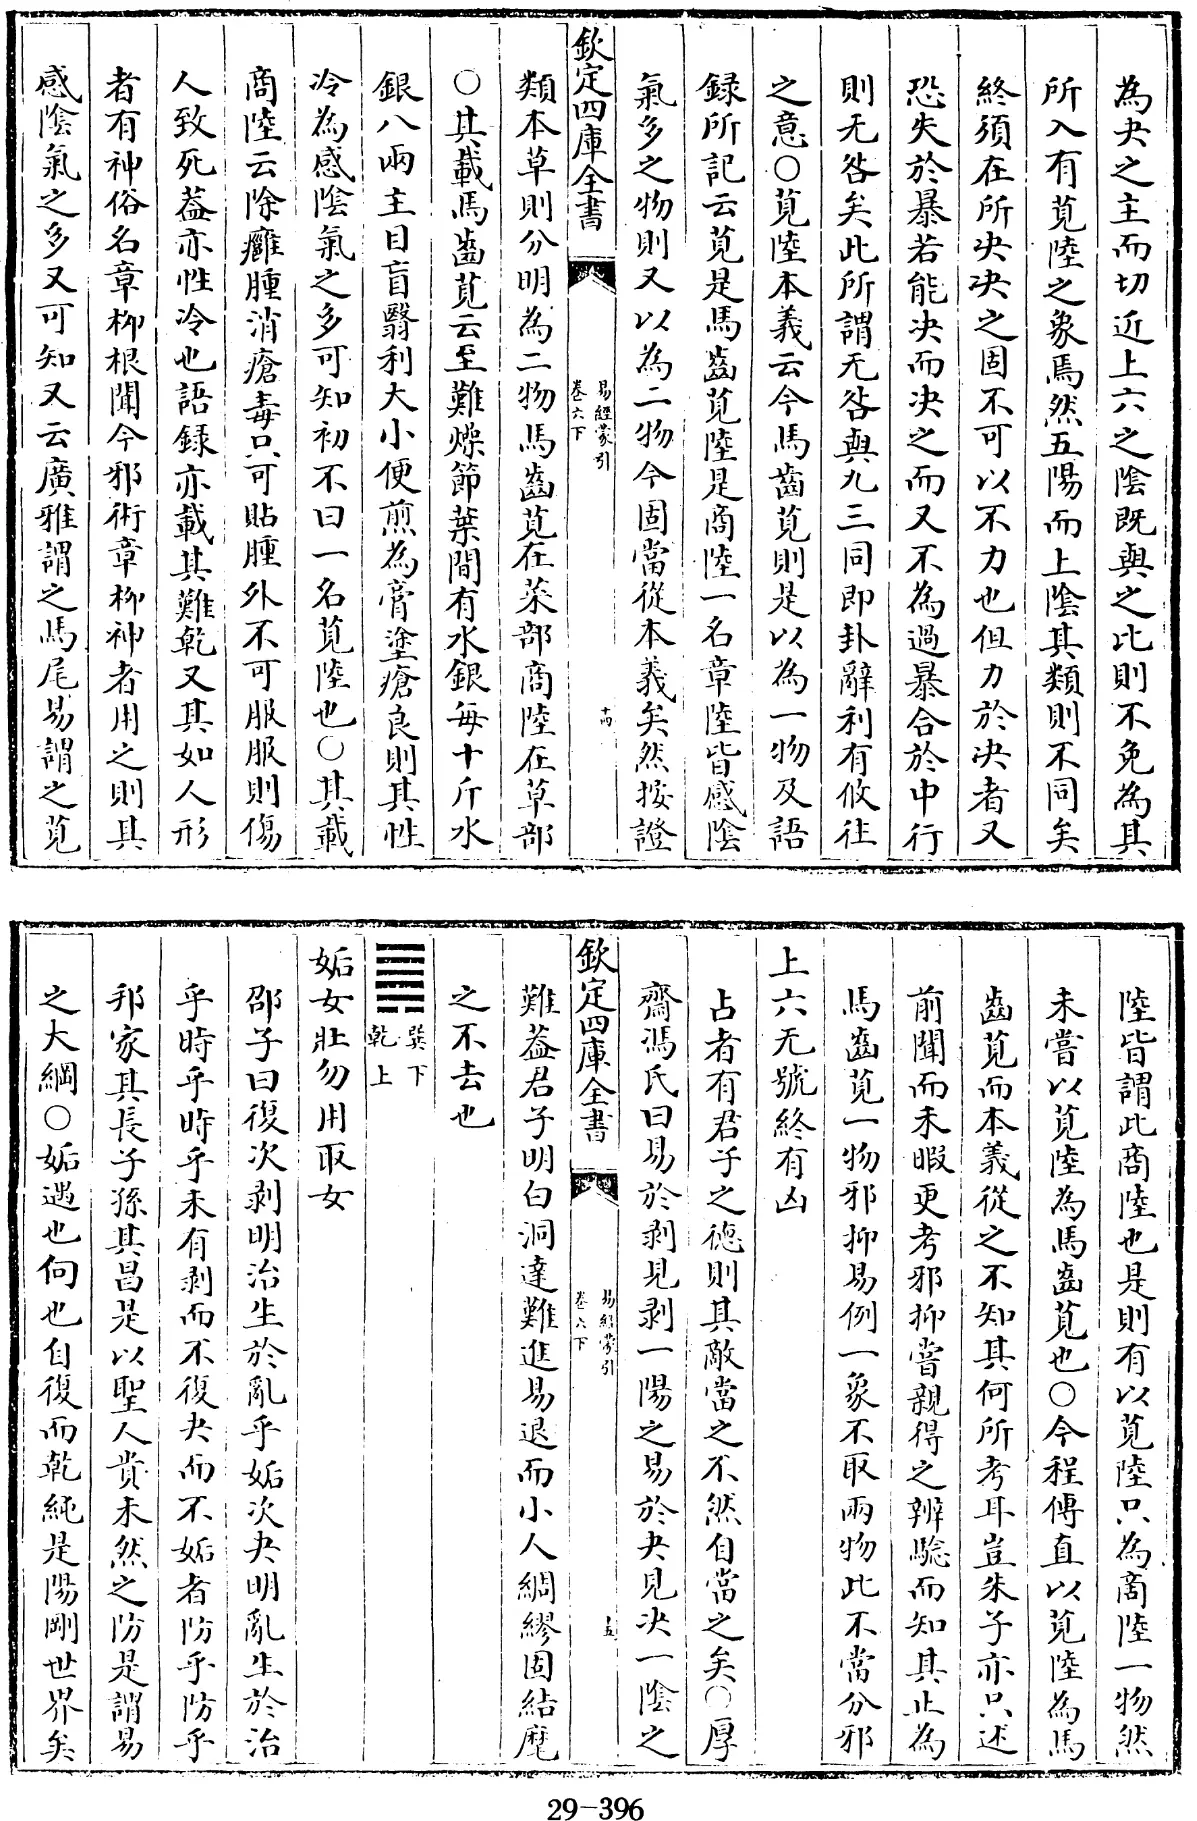 為夬之主而切近上六之陰既與之比則不免為其
所入有莧陸之象焉然五陽而上陰其類則不同矣
終須在所决决之固不可以不力也但力於决者又
恐失於暴若能决而决之而又不為過暴合於中行
則无咎矣此所謂无咎與九三同即卦辭利有攸往
之意○莧陸本義云今馬齒莧則是以為一物及語
録所記云莧是馬齒莧陸是商陸一名章陸皆感陰
氣多之物則又以為二物今固當從本義矣然按證
欽定四庫全書
易經蒙引
卷六下
十四
類本草則分明為二物馬齒莧在菜部商陸在草部
○其載馬齒莧云至難燥節葉間有水銀每十斤水
銀八兩主目盲翳利大小便煎為膏塗瘡良則其性
冷為感陰氣之多可知初不曰一名莧陸也○其載
商陸云除癰腫消瘡毒只可貼腫外不可服服則傷
人致死葢亦性冷也語録亦載其難乾又其如人形
者有神俗名章柳根聞今邪術章柳神者用之則其
感陰氣之多又可知又云廣雅謂之馬尾易謂之莧
陸皆謂此商陸也是則有以莧陸只為商陸一物然
未嘗以莧陸為馬齒莧也○今程傳直以莧陸為馬
齒莧而本義從之不知其何所考耳豈朱子亦只述
前聞而未暇更考邪抑嘗親得之辨驗而知其止為
馬齒莧一物邪抑易例一象不取兩物此不當分邪
上六无號終有凶
占者有君子之德則其敵當之不然自當之矣○厚
齋馮氏曰易於剥見剥一陽之易於夬見决一陰之
欽定四庫全書
易經蒙引
卷六下
十五
難葢君子明白洞達難進易退而小人綢繆固結麾
之不去也
䷫巽下乾上
姤女壯勿用取女
邵子曰復次剥明治生於亂乎姤次夬明亂生於治
乎時乎時乎未有剥而不復夬而不姤者防乎防乎
邦家其長子孫其昌是以聖人貴未然之防是謂易
之大綱○姤遇也何也自復而乾純是陽剛世界矣
29-396